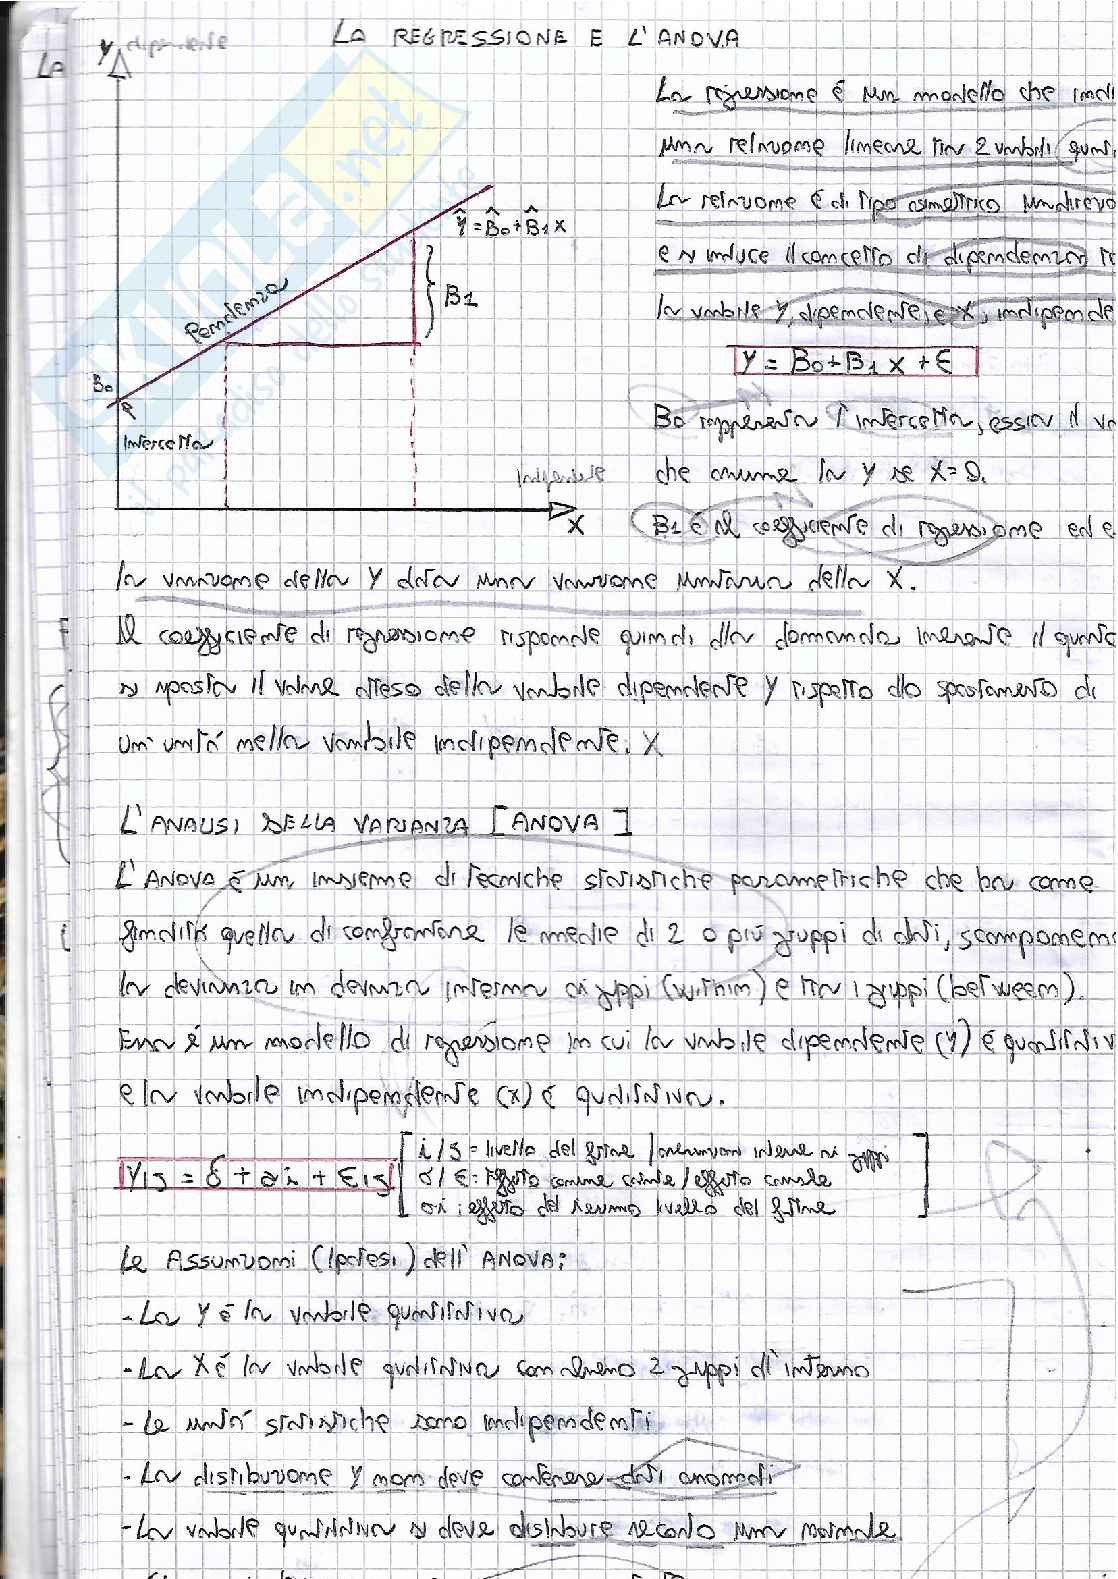 LA REGRESSIONE E L'ANOVA
La
Y dipendente
La regressione è un modello che indi
una relazione lineare tra 2 variabili quan
La relazione è di tipo asimmetrico unidirezio
e si induce il concetto di dipendenza
la variabile Y, dipendente, e X, indipende
Y = B0 + B1 X + ε
B0 rappresenta l'intercetta, ossia il va
che assume la Y se X=0.
B1 è il coefficiente di regressione ed e
Ŷ = B̂0 + B̂1 X
B1
Pendenza
B0
Intercetta
Indipendente
X
la variazione della Y data una variazione unitaria della X.
Il coefficiente di regressione risponde quindi alla domanda inerente il quanto
si sposta il valore atteso della variabile dipendente Y rispetto allo spostamento di
un'unità nella variabile indipendente. X
L'ANALISI DELLA VARIANZA [ANOVA]
L'ANOVA è un insieme di tecniche statistiche parametriche che ha come
finalità quella di confrontare le medie di 2 o più gruppi di dati, scomponen
la devianza in devianza interna ai gruppi (within) e tra i gruppi (between).
Essa è un modello di regressione in cui la variabile dipendente (Y) è quantitativ
e la variabile indipendente (X) è qualitativa.
Yij = δ + ai + εij
i/j = livello del fattore / osservazioni interne ai gruppi
δ/ε: effetto comune / effetto casuale
ai: effetto del livello del fattore
Le Assunzioni (Ipotesi) dell'ANOVA:
- La Y è la variabile quantitativa
- La X è la variabile qualitativa con almeno 2 gruppi all'interno
- Le unità statistiche sono indipendenti
- La distribuzione Y non deve contenere dati anomali
- La variabile quantitativa si deve distribuire secondo una normale
SKUOLA.net
il paradiso dello studente